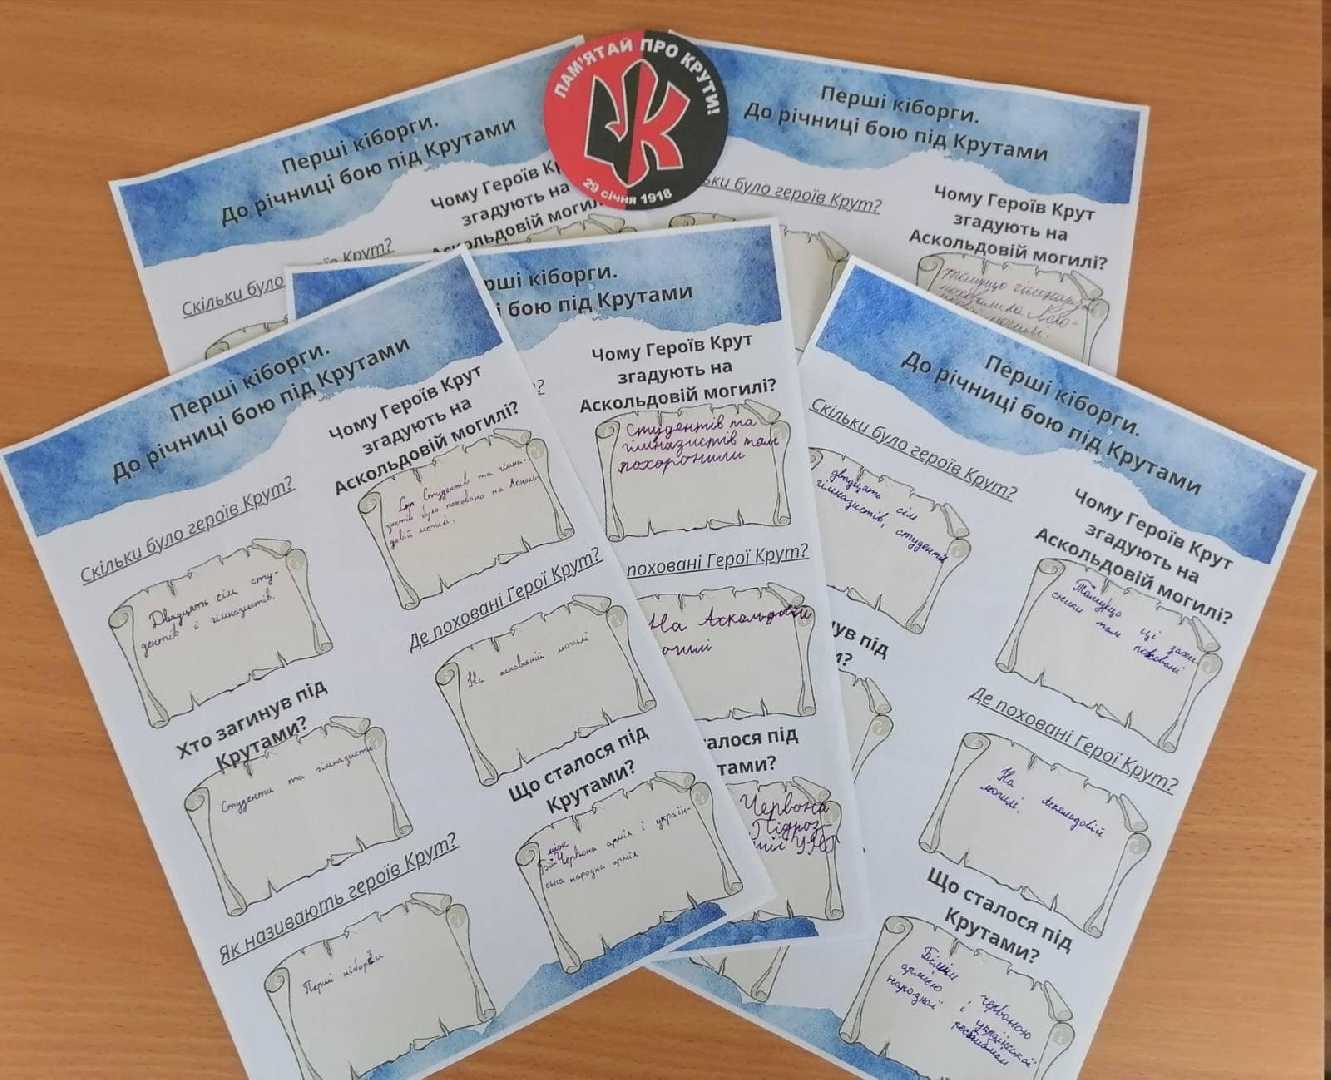 ПАМ'ЯТАЙ ПРО КРУТИ!
29 січня 1918
Перші кіборги.
До річниці бою під Крутами
Чому Героїв Кр
згадують на
Аскольдовій могил
Скільки було
Перші кіборги.
До річниці бою під Крутами
ьки було героїв Крут?
Чому Героїв Крут
згадують на
Аскольдовій могилі?
рші кіборги.
і бою під Крутами
Чому Героїв Крут
згадують на
Аскольдовій могилі?
Студентів та
гімназистів там
похоронили
поховані Герої Крут?
На Аскольдовій
могилі
талося під
тами?
Червона
Підроз-
УНР
Перші кіборги.
До річниці бою під Крутами
Скільки було героїв Крут?
Двадцять сім сту-
дентів і гімназистів.
Чому Героїв Крут
згадують на
Аскольдовій могилі?
студентів та гімна-
зистів було поховано на Асколь-
довій могилі.
Хто загинув під
Крутами?
Студенти та гімназисти
Де поховані Герої Крут?
На могилі
Як називають героїв Крут?
Перші кіборги
Що сталося під
Крутами?
Червона армія і україн-
ська народна армія
Перші кіборги.
До річниці бою під Крутами
Скільки було героїв Крут?
двадцять сім
гімназистів, студентів
Чому Героїв Крут
згадують на
Аскольдовій могилі?
Тому що ці захи
сники там поховані
ув під
?
Де поховані Герої Крут?
На Аскольдовій
могилі
Що сталося під
Крутами?
Бійки червоною
армією і української
народної республіки